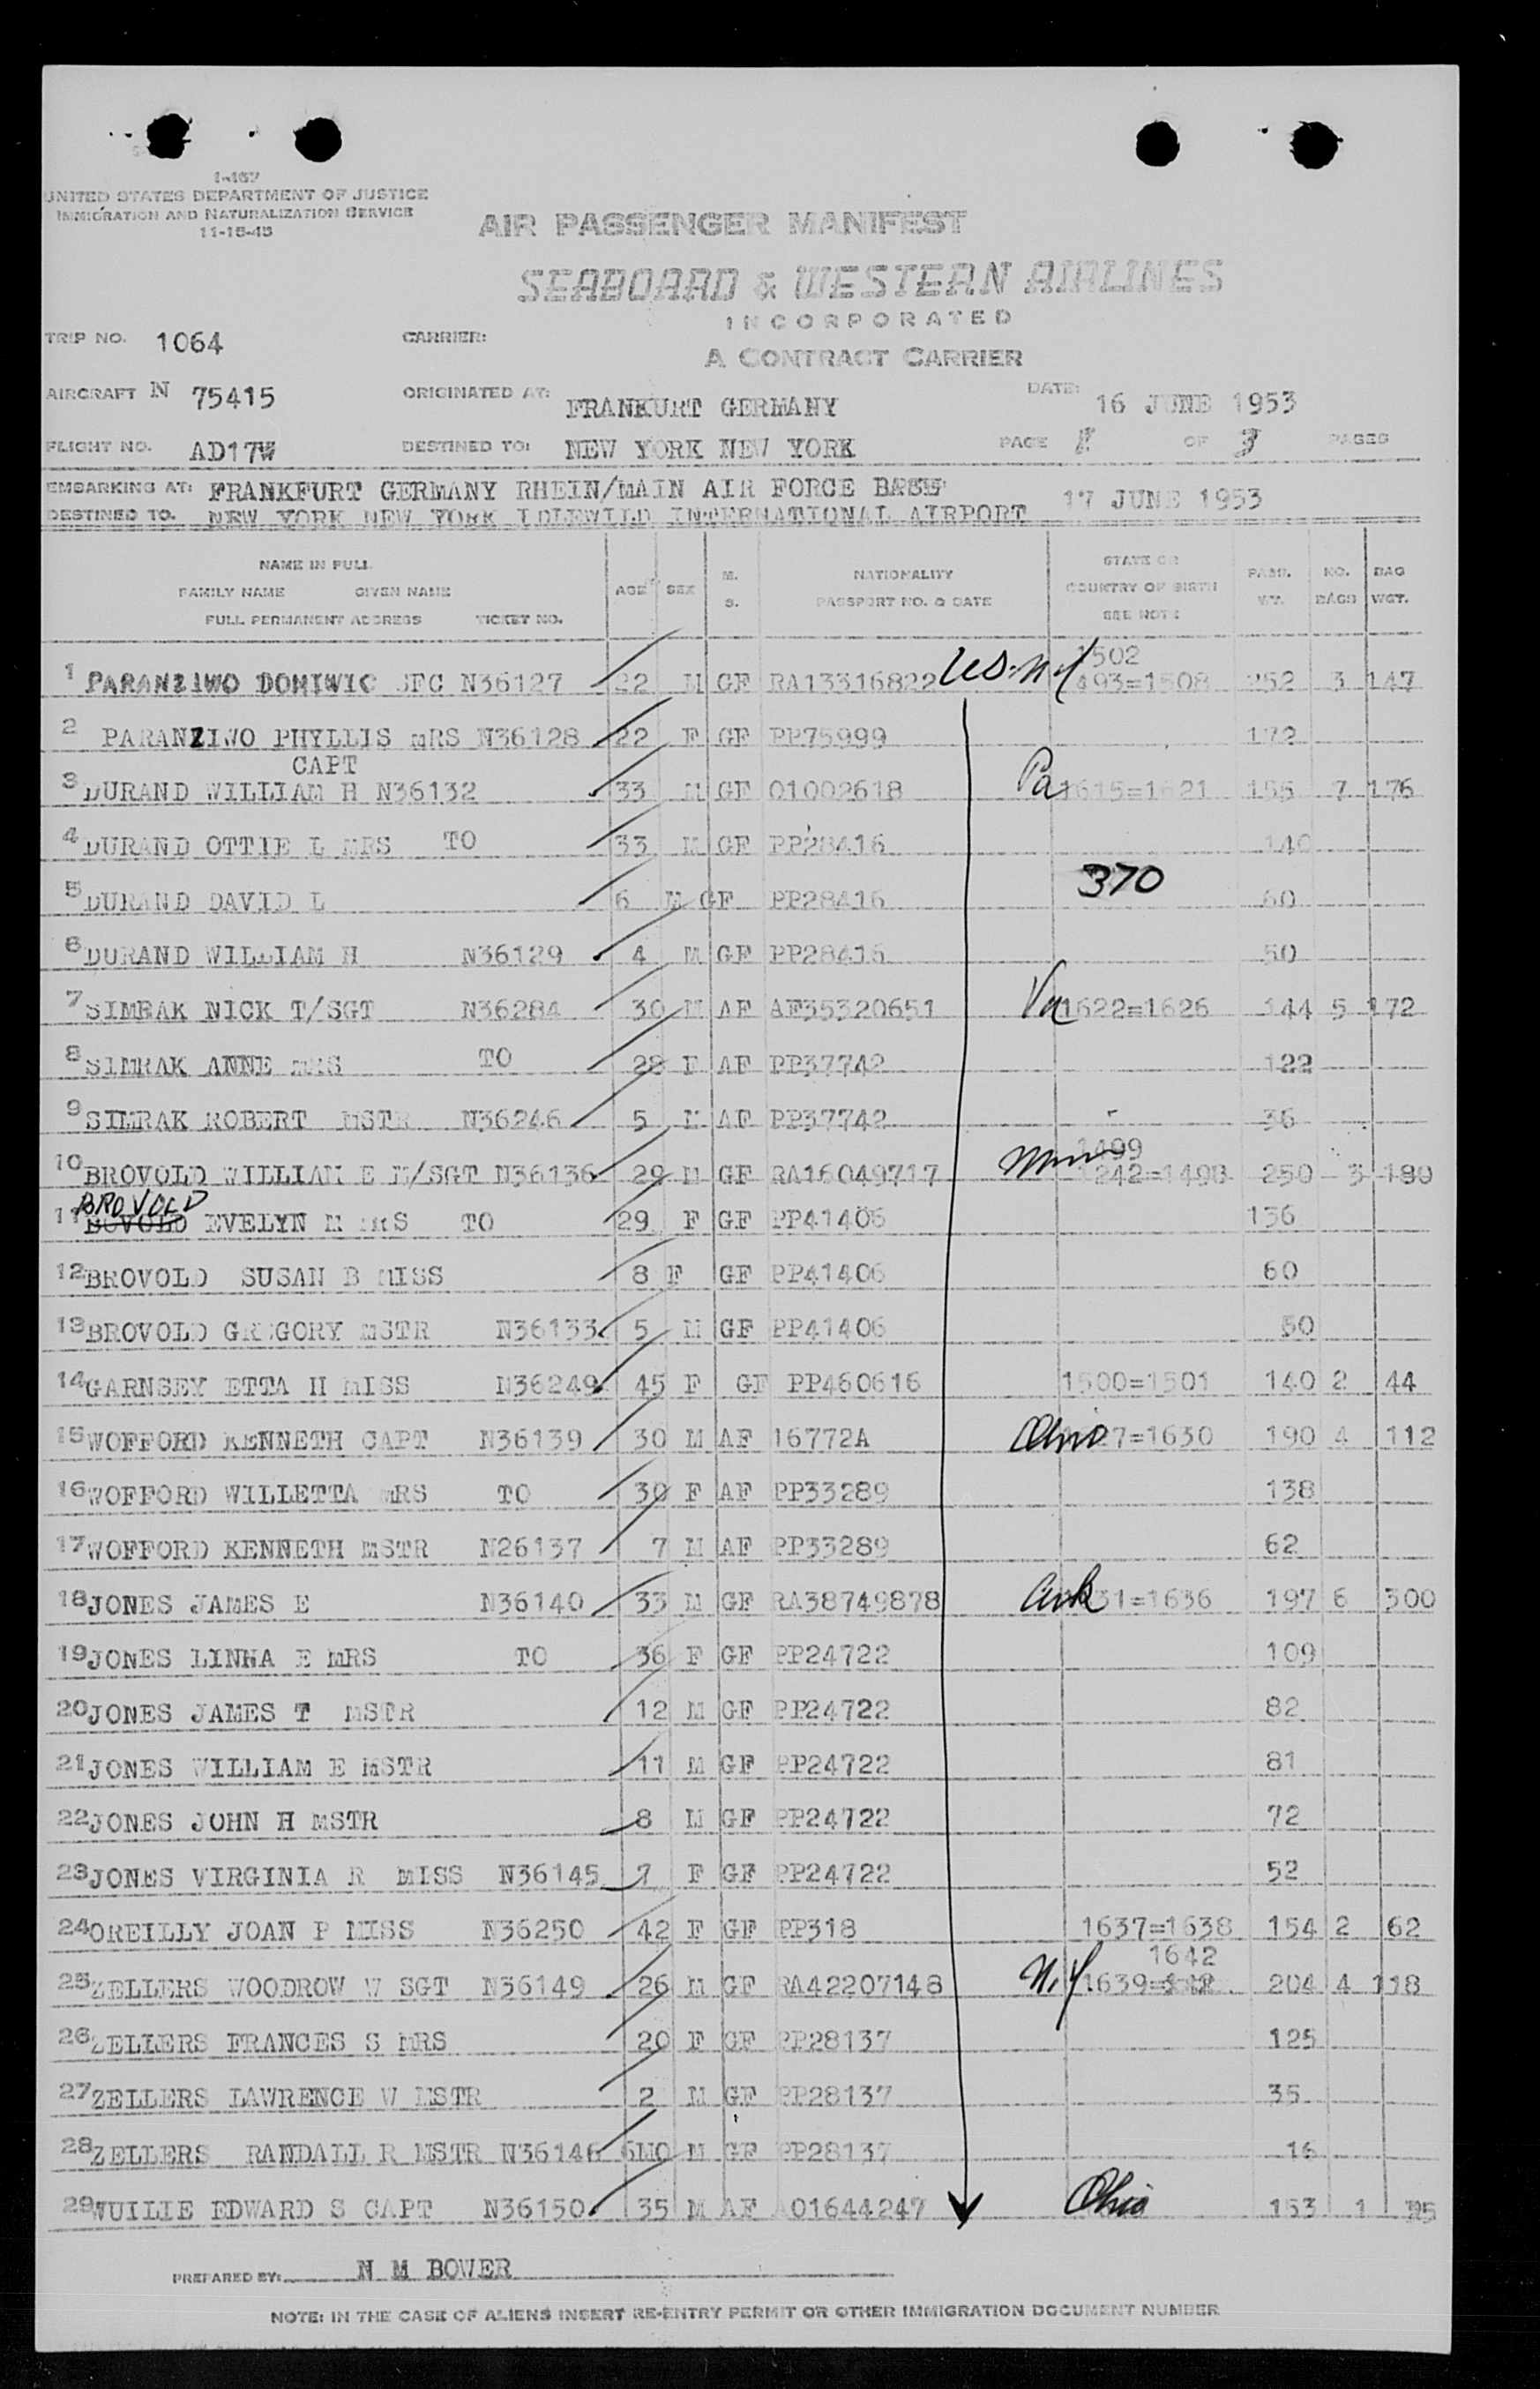 I-467
UNITED STATES DEPARTMENT OF JUSTICE
IMMIGRATION AND NATURALIZATION SERVICE
11-15-45
AIR PASSENGER MANIFEST
SEABOARD & WESTERN AIRLINES
INCORPORATED
A CONTRACT CARRIER
TRIP NO. 1064 CARRIER:
AIRCRAFT N 75415 ORIGINATED AT: FRANKURT GERMANY DATE: 16 JUNE 1953
FLIGHT NO. AD17W DESTINED TO: NEW YORK NEW YORK PAGE 1 OF 3 PAGES
EMBARKING AT: FRANKFURT GERMANY RHEIN/MAIN AIR FORCE BASE 17 JUNE 1953
DESTINED TO. NEW YORK NEW YORK IDLEWILD INTERNATIONAL AIRPORT
NAME IN FULL
FAMILY NAME GIVEN NAME
FULL PERMANENT ADDRESS TICKET NO.
AGE SEX M. S.
NATIONALITY
PASSPORT NO. & DATE
STATE OR
COUNTRY OF BIRTH
SEE NOTE
PASS. WT. NO. BAGS BAG WGT.
1502
1 PARANZIWO DOMIWIC SFC N36127 22 M GF RA13316822 US. NY 493=1508 252 3 147
2 PARANZIWO PHYLLIS MRS N36128 22 F GF PP75999 172
CAPT
3 DURAND WILLIAM H N36132 33 M GF 01002618 Pa 1615=1621 155 7 176
4 DURAND OTTIE L MRS TO 33 M GF PP28416 140
370
5 DURAND DAVID L 6 M GF PP28416 60
6 DURAND WILLIAM H N36129 4 M GF PP28416 50
7 SIMRAK NICK T/SGT N36284 30 M AF AF35320651 Va 1622=1626 144 5 172
8 SIMRAK ANNE MRS TO 28 F AF PP37742 122
9 SIMRAK ROBERT MSTR N36246 5 M AF PP37742 36
1499
10 BROVOLD WILLIAM E M/SGT N36136 29 M GF RA16049717 Minn 1242=1498 250 3 180
BROVOLD
11 BOVOLD EVELYN M MRS TO 29 F GF PP41406 136
12 BROVOLD SUSAN B MISS 8 F GF PP41406 60
13 BROVOLD GREGORY MSTR N36133 5 M GF PP41406 50
14 GARNSEY ETTA H MISS N36249 45 F GF PP460616 1500=1501 140 2 44
15 WOFFORD KENNETH CAPT N36139 30 M AF 16772A Ohio 27=1630 190 4 112
16 WOFFORD WILLETTA MRS TO 30 F AF PP33289 138
17 WOFFORD KENNETH MSTR N26137 7 M AF PP33289 62
18 JONES JAMES E N36140 33 M GF RA38749878 Ark 31=1636 197 6 300
19 JONES LINNA E MRS TO 36 F GF PP24722 109
20 JONES JAMES T MSTR 12 M GF PP24722 82
21 JONES WILLIAM E MSTR 11 M GF PP24722 81
22 JONES JOHN H MSTR 8 M GF PP24722 72
23 JONES VIRGINIA R MISS N36145 7 F GF PP24722 52
24 OREILLY JOAN P MISS N36250 42 F GF PP318 1637=1638 154 2 62
1642
25 ZELLERS WOODROW W SGT N36149 26 M GF RA42207148 N.Y 1639= 204 4 118
26 ZELLERS FRANCES S MRS 20 F GF PP28137 125
27 ZELLERS LAWRENCE W MSTR 2 M GF PP28137 35
28 ZELLERS RANDALL R MSTR N36146 6MO M GF PP28137 16
29 WUILIE EDWARD S CAPT N36150 35 M AF AO1644247 Ohio 153 1
PREPARED BY: N M BOWER
NOTE: IN THE CASE OF ALIENS INSERT RE-ENTRY PERMIT OR OTHER IMMIGRATION DOCUMENT NUMBER